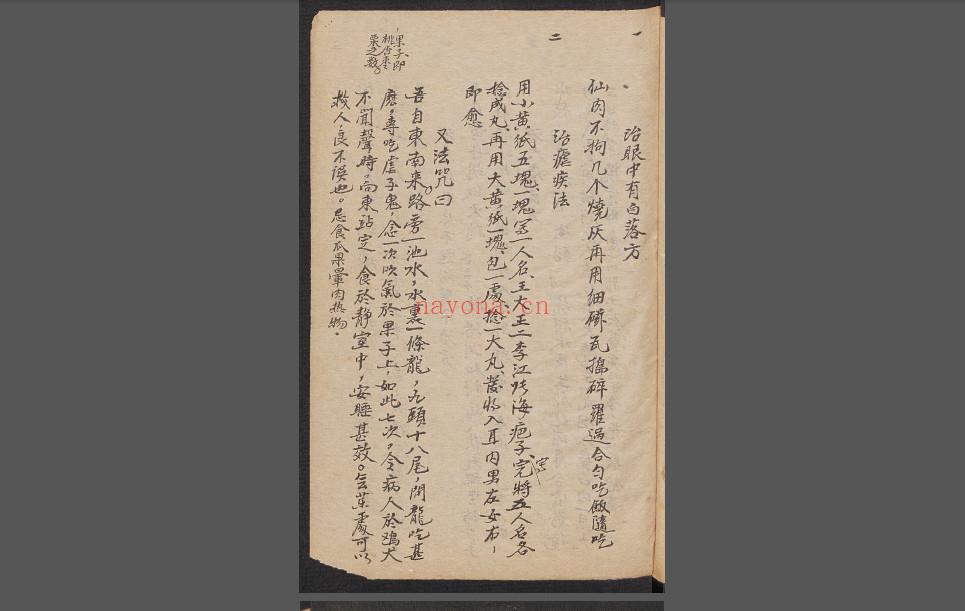 一
治眼中有白落方
仙肉不拘几个燒灰再用細磁瓦搗碎羅過合勻吃飯隨吃
二
治瘧疾法
用小黃紙五塊一塊写一人名王大王二李江張海疤子完將五人名各
捻成丸再用大黃紙一塊包一處捻一大丸
入耳内男左女右
即愈
又法咒曰
吾自東南來。路旁一池水，水裏一條龍，九頭十八尾，問龍吃甚
麽，專吃虐子鬼，念一次吹氣於果子上，如此七次。令病人於鷄犬
不聞聲時，向東站定，食於靜室中，安睡甚效。
處可以
救人，良不誤也。忌食瓜果暈肉热物。
果子即
桃杏枣
栗之類。
nayona.cn